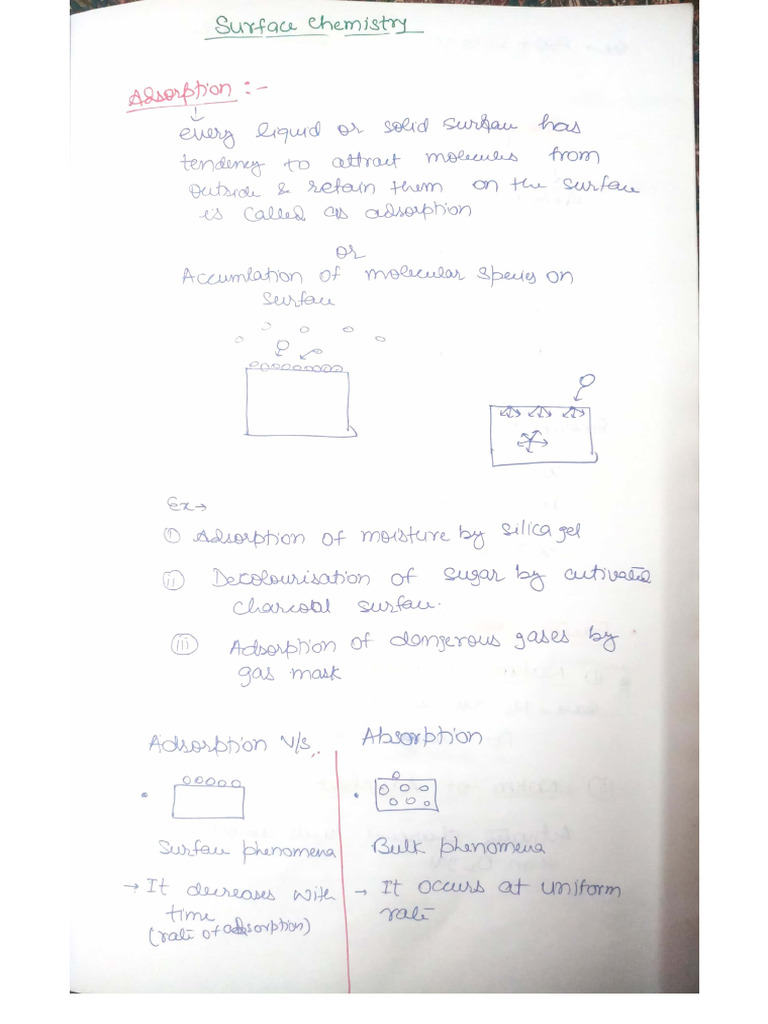 Surface chemistry
Adsorption :-
every liquid or solid surface has
tendency to attract molecules from
outside & retain them on the surface
is called as adsorption
or
Accumlation of molecular species on
surface
Ex→
① Adsorption of moisture by silica gel
ii Decolourisation of sugar by cutivated
charcoal surface.
iii Adsorption of dangerous gases by
gas mask
Adsorption V/s. Absorption
Surface phenomena
Bulk phenomena
→ It decreases with
time
(rate of adsorption)
→ It occurs at uniform
rate